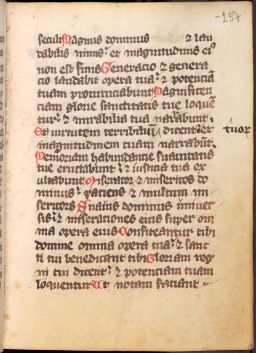 237
seculi Magnus dominus & lau
dabilis nimis: et magnitudinis eiꝰ
non est finis Generacio & genera
cio laudabit opera tua: & potenciā
tuam pronunciabunt Magnificen
ciam glorie sanctitatis tue loquē
tur: & mirabilia tua narabunt
Et virtutem terribiliū tuoꝝ dicent: et
magnitudinem tuam narrabūt
Memoriam habundancie suavitatis
tue eructabunt: & iusticia tua ex
ultabunt Miserator & misericors do
minus: paciens & multum mi
sericors Suavis dominus univer
sis: & miseraciones eius super om
nia opera eius Confiteantur tibi
domine omnia opera tua: & sanc
ti tui benedicant tibi Gloriam reg
ni tui dicent: & potenciam tuam
loquentur Ut notam faciant